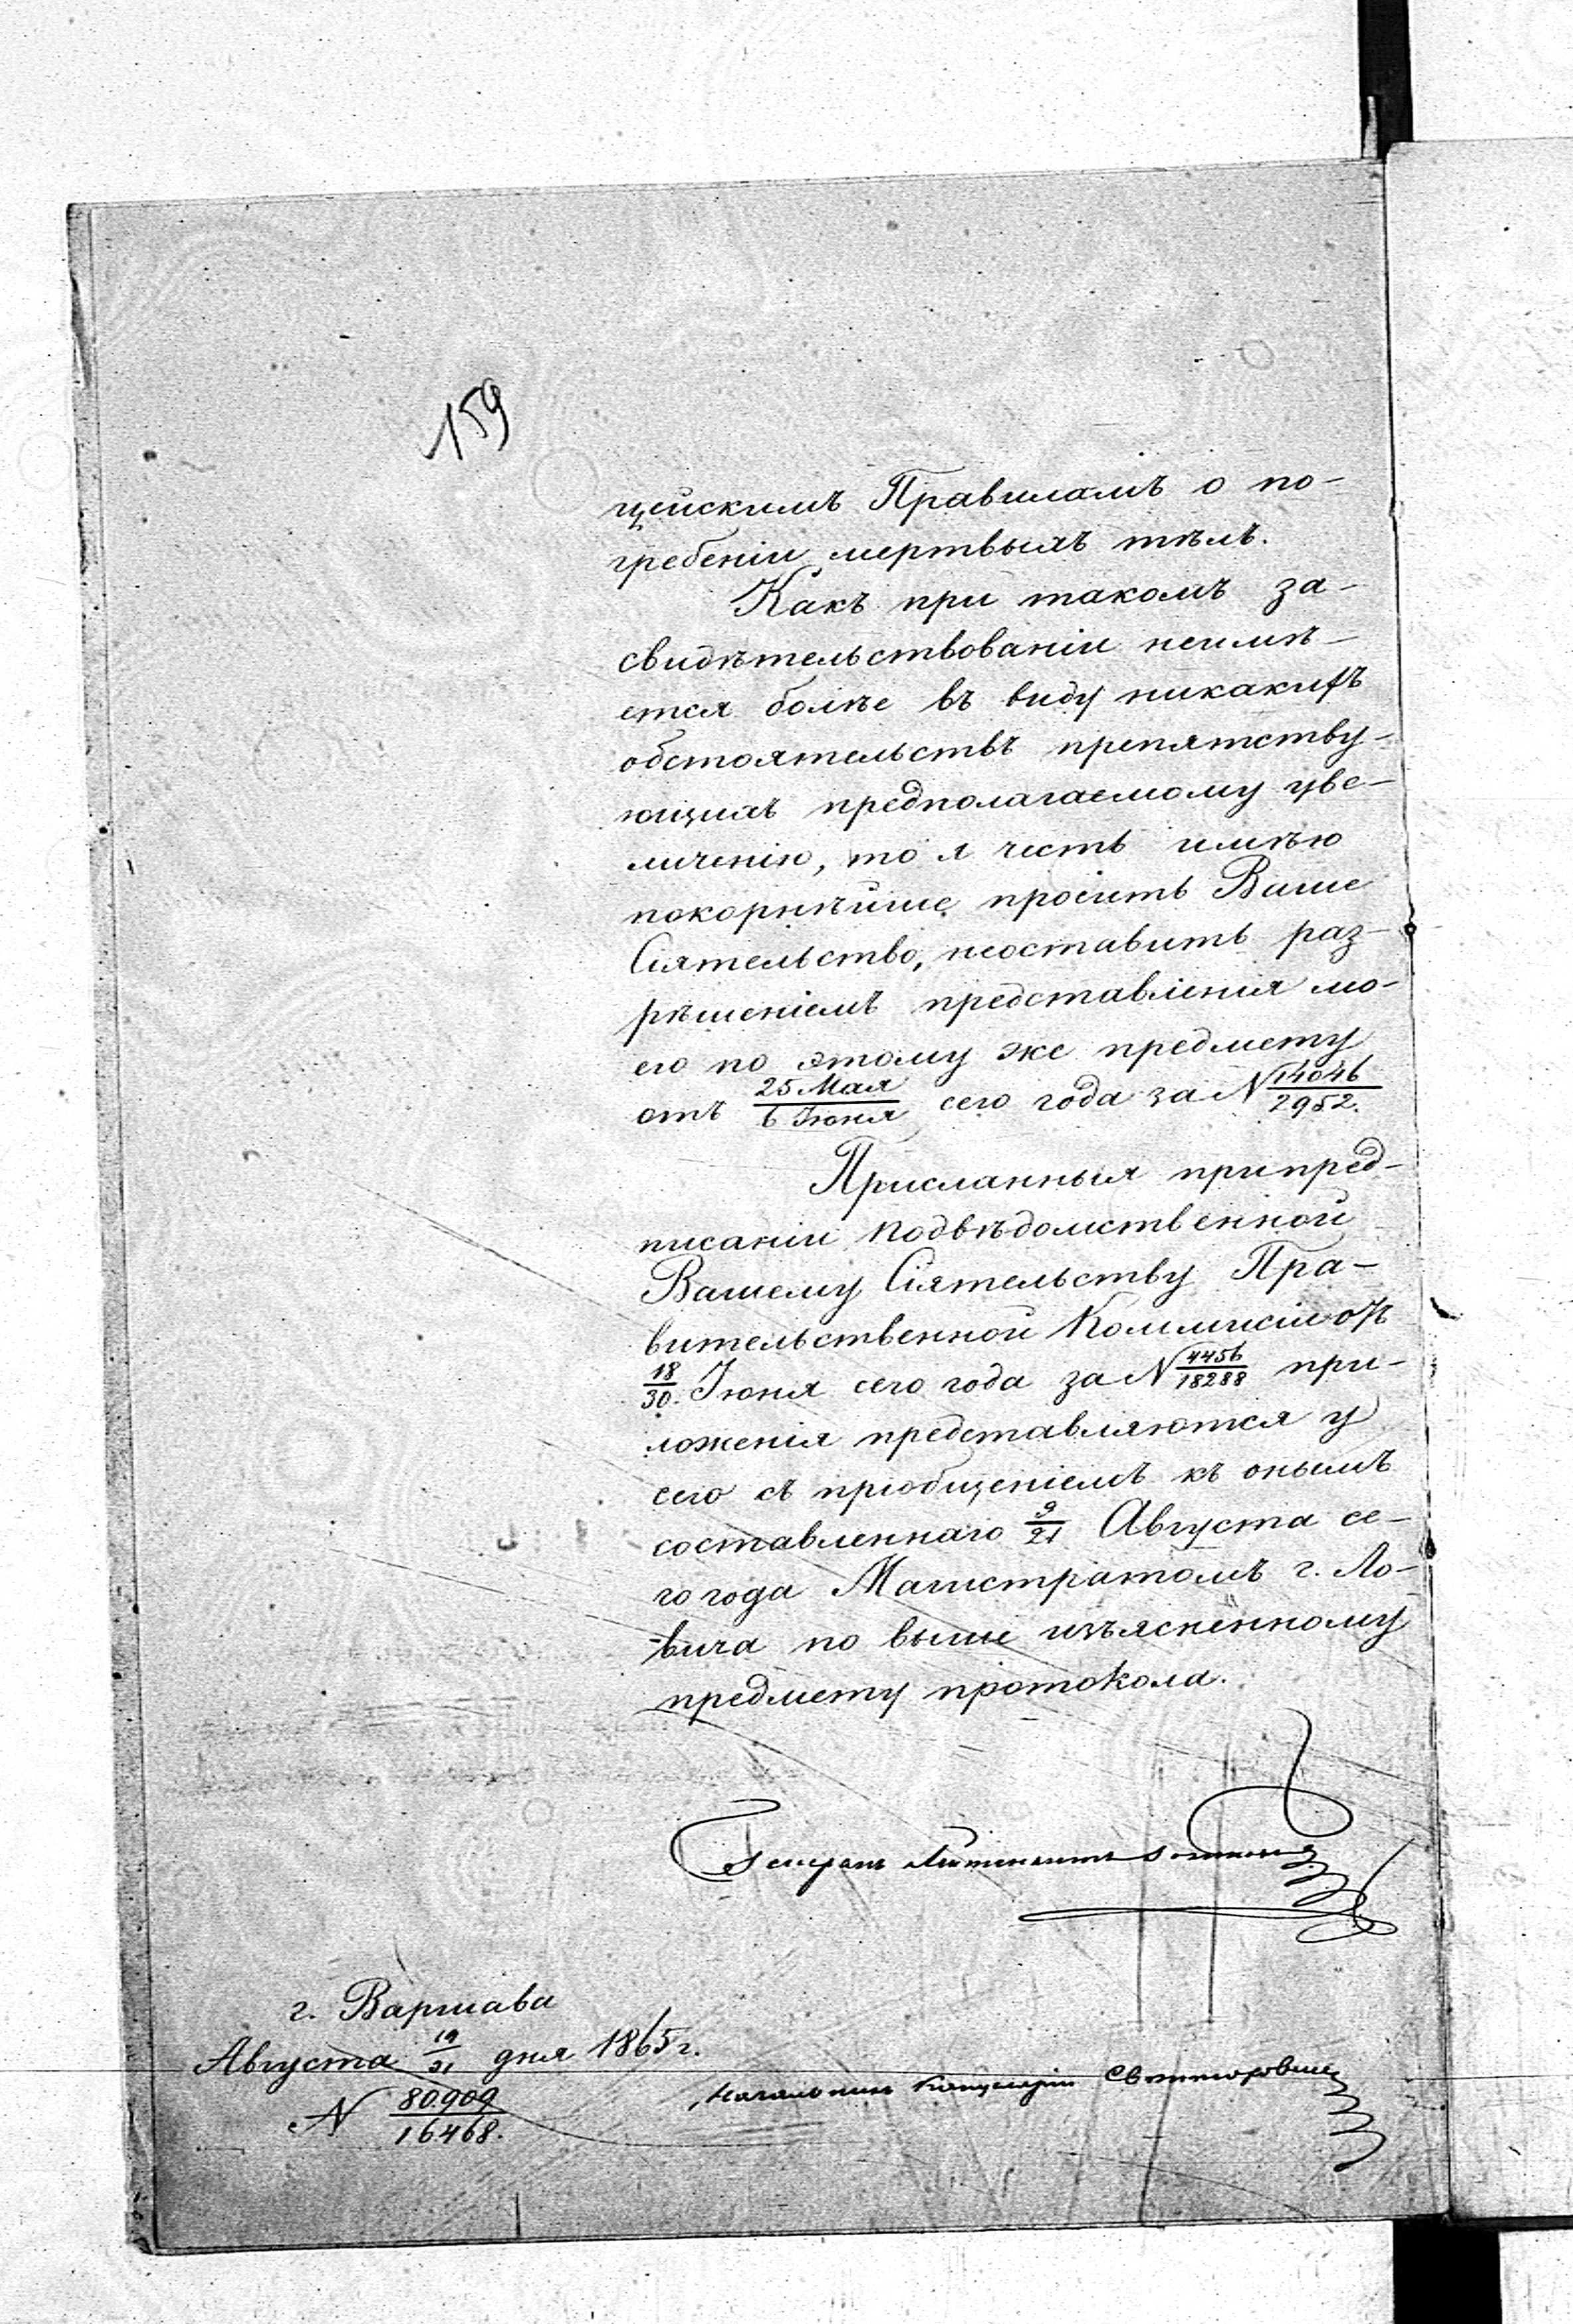 159
цейскимъ Правиламъ о по-
гребеніи мертвыхъ тѣлъ.
Какъ при такомъ за-
свидѣтельствованіи неимѣ-
ется болѣе въ виду никакихъ
обстоятельствъ препятству-
ющихъ предполагаемому уве-
личенію, то я честь имѣю
покорнѣйше просить Ваше
Сіятельство, неоставить раз-
рѣшеніемъ представленія мо-
его по этому же предмету
отъ 25 Мая/6 Іюня сего года за N 14046/2952.
Присланныя припред-
писаніи подвѣдомственной
Вашему Сіятельству Пра-
вительственной Коммисіи отъ
18/30. Іюня сего года за N 4456/18288 при-
ложенія представляются у
сего съ пріобщеніемъ къ онымъ
составленнаго 9/21 Августа се-
го года Магистратомъ г. Ло-
вича по выше изъясненному
предмету протокола.
Генералъ Лейтенантъ
г. Варшава
Августа 19/31 дня 1865 г.
N 80.909/16468.
Начальникъ Канцеляріи